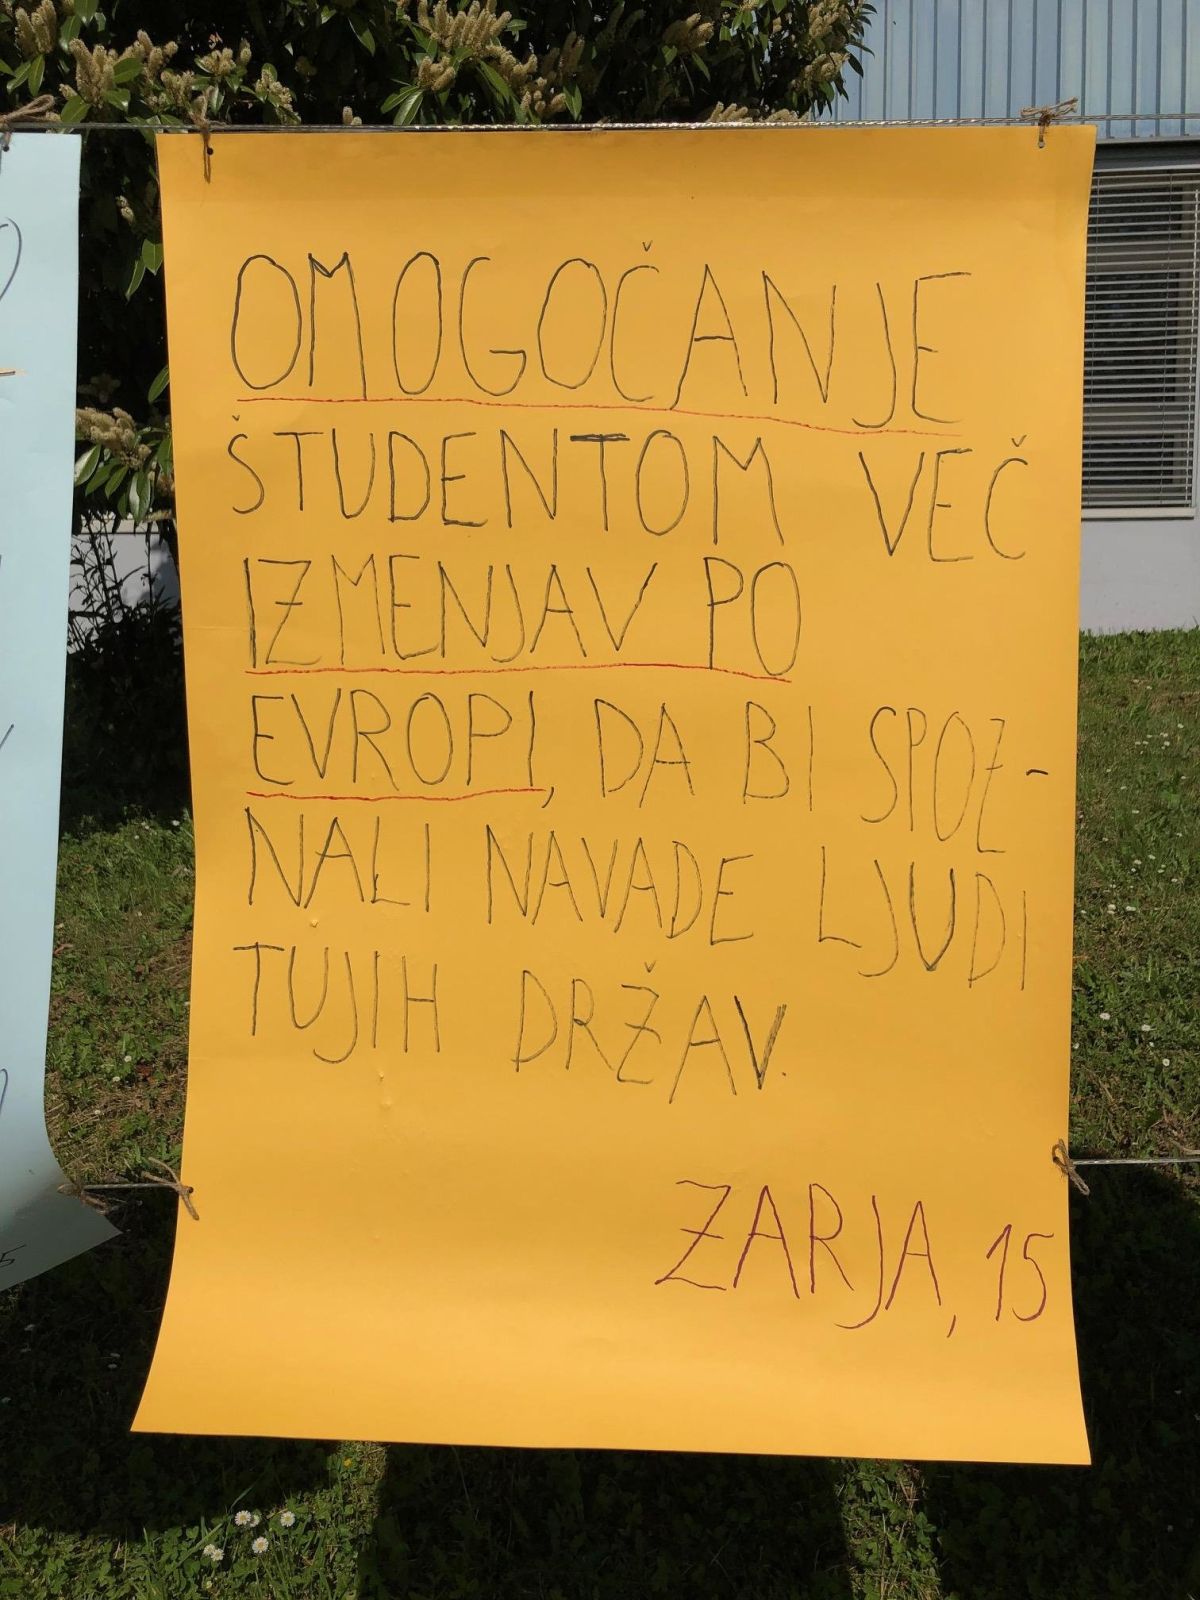 OMOGOČANJE
ŠTUDENTOM VEČ
IZMENJAV PO
EVROPI, DA BI SPOZ-
NALI NAVADE LJUDI
TUJIH DRŽAV.
ZARJA, 15